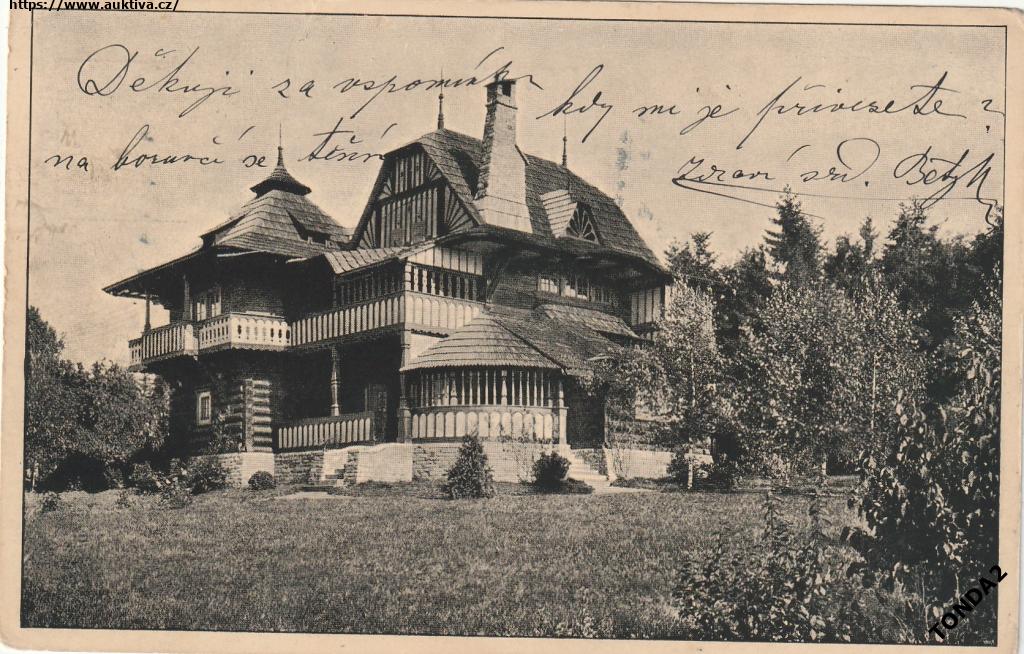 https://www.auktiva.cz/
Děkuji za vspomínk kdy mi je přivezete?
na boruvčí se těším
Zdraví srd.
TONDA2